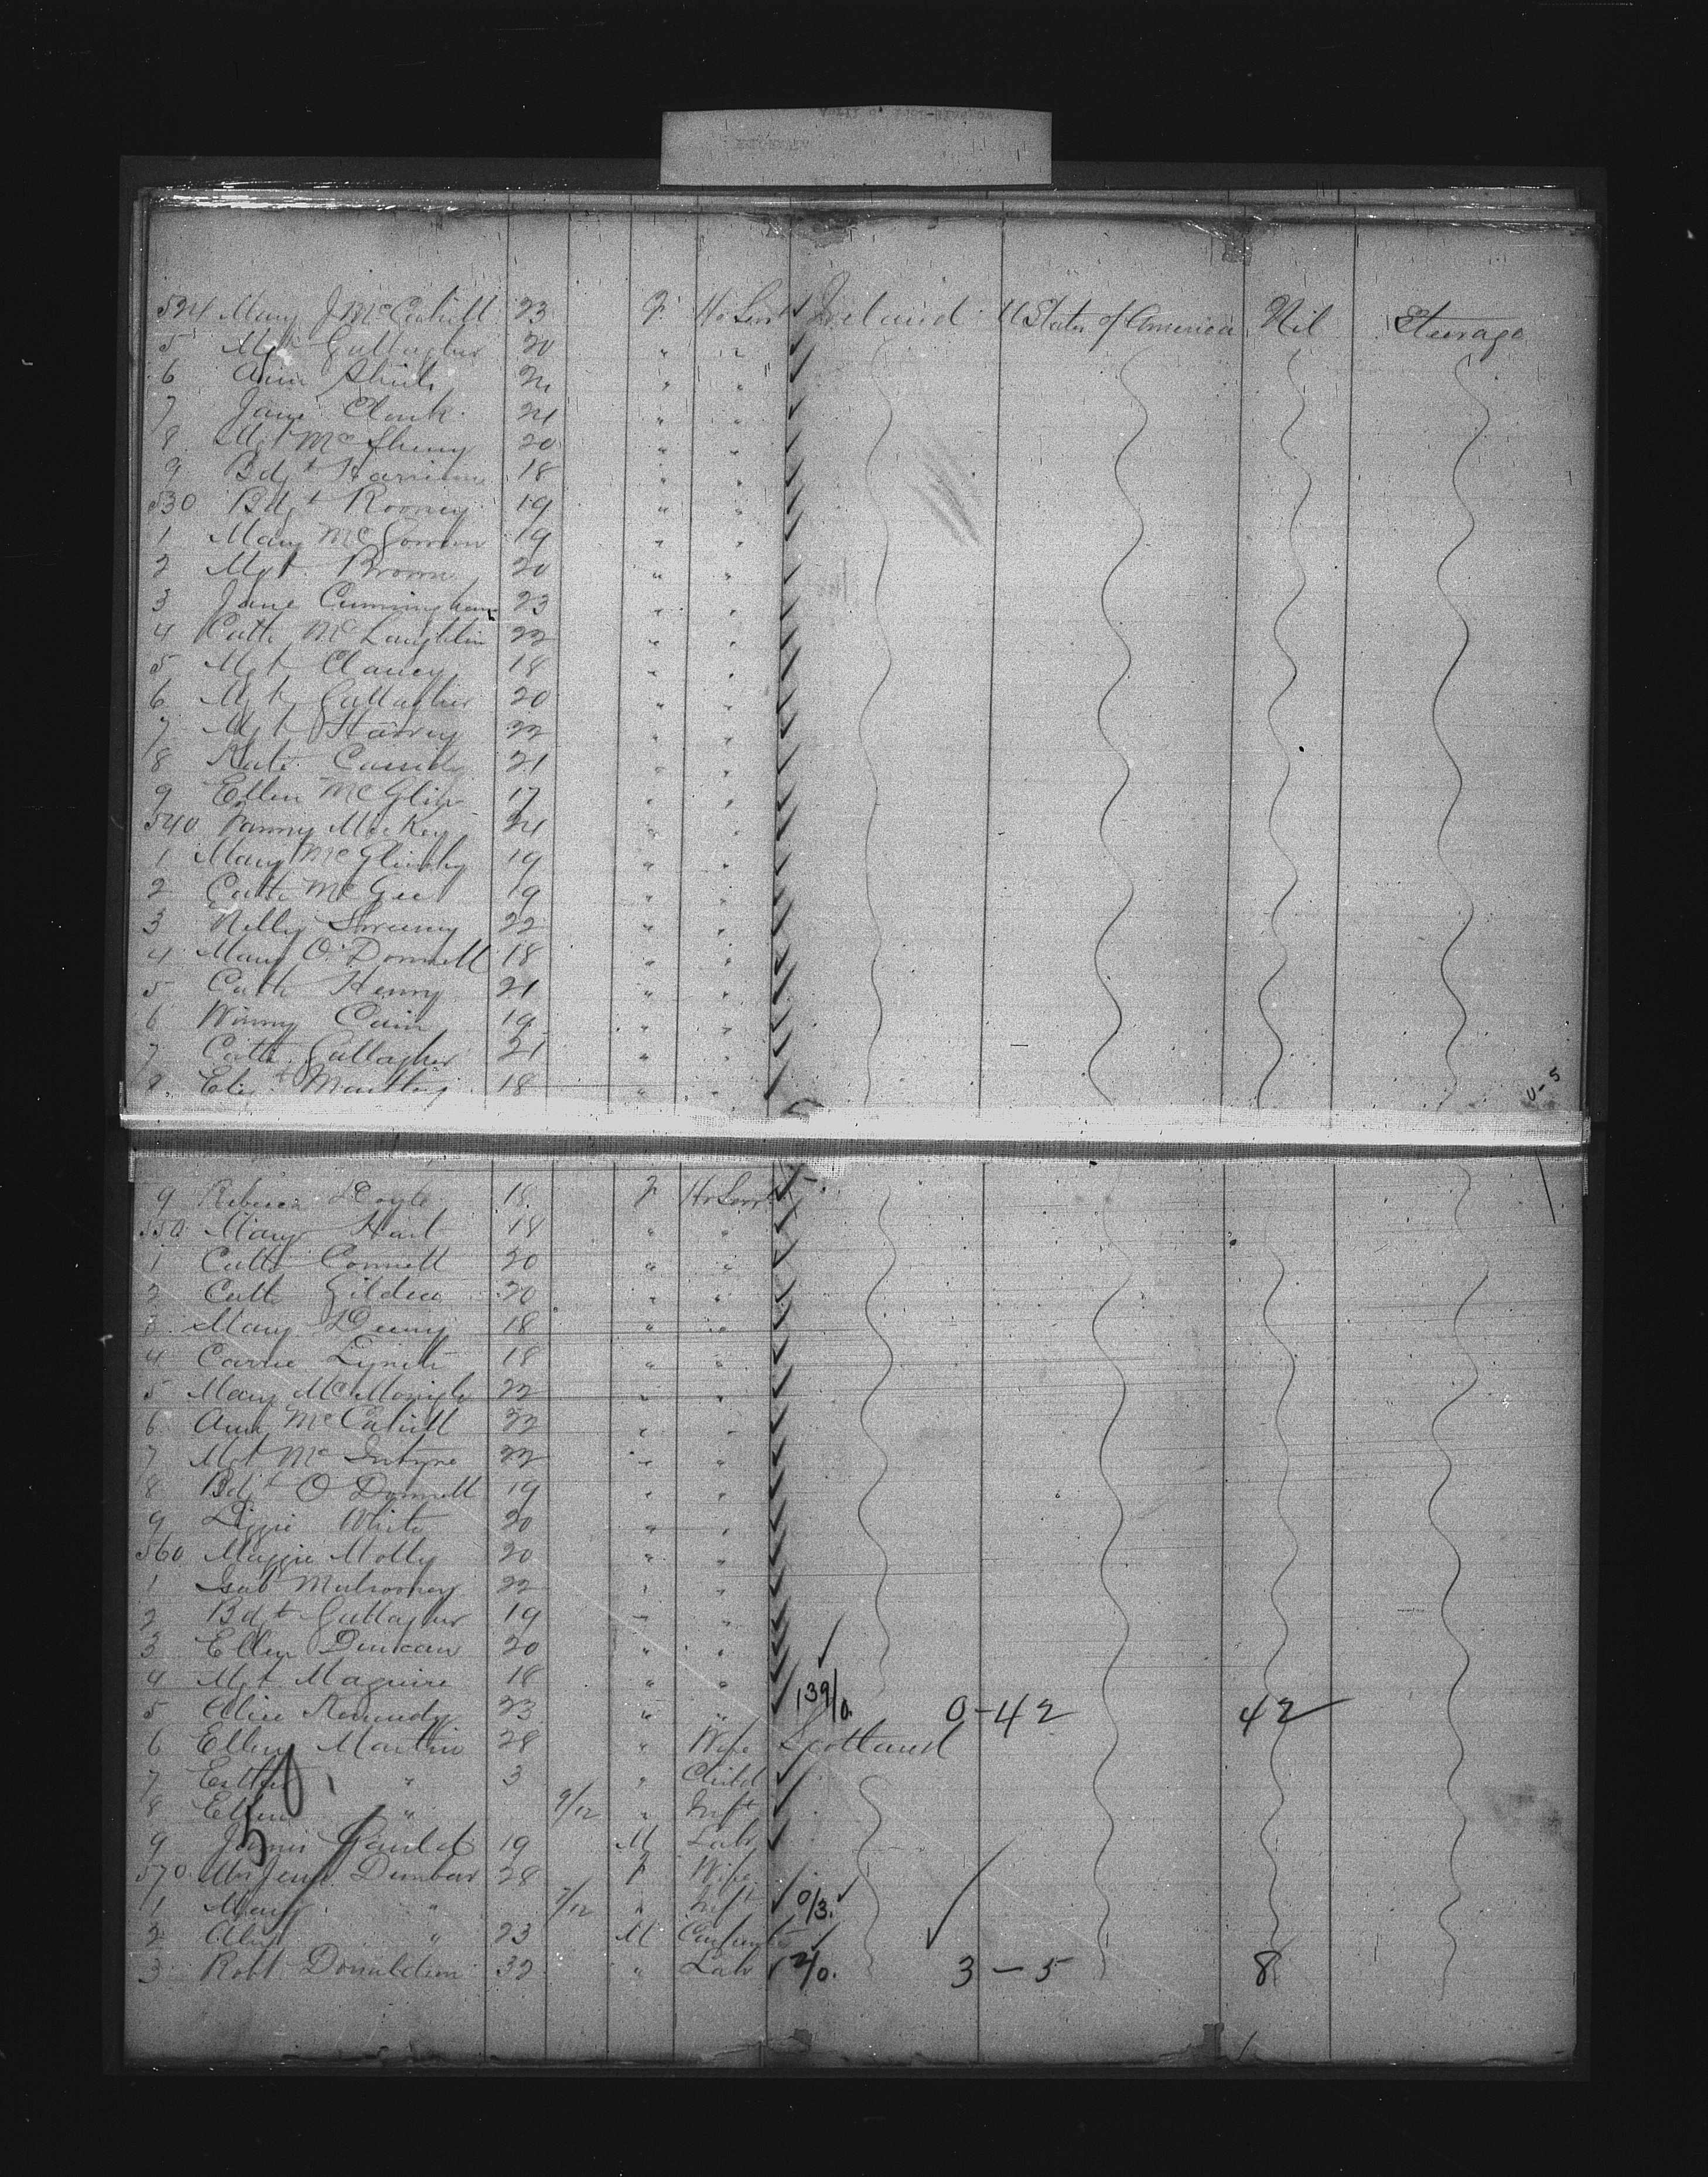 524 Mary J McCahill 23 F Ho Servt Ireland U States of America Nil Steerage
5 Mgt Gallagher 20 " "
6 Ann 24 " "
7 Jane Clark 24 " "
8 Mgt McSheny 20 " "
9 Bdgt Harrison 18 " "
530 Bdgt Rooney 19 " "
1 Mary McGowan 19 " "
2 Mgt Brown 20 " "
3 Jane Cunningham 23 " "
4 Cath McLaughlin 22 " "
5 Mgt Clancy 18 " "
6 Mgt Gallagher 20 " "
7 Mgt Harvey 22 " "
8 Kate Cassidy 21 " "
9 Ellen McGlin 17 " "
540 Fanny McKay 24 " "
1 Mary McGlinchy 19 " "
2 Cath McGee 19 " "
3 Nelly Sweeney 22 " "
4 Mary O'Donnell 18 " "
5 Cath Henry 21 " "
6 Winny Cain 19 " "
7 Cath Gallagher 21 " "
8 Elizt 18 " "
9 Rebecca Doyle 18 F Ho Servt
550 Mary 18 " "
1 Cath Connell 20 " "
2 Cath Gildea 20 " "
3 Mary Deeny 18 " "
4 Carrie Lynch 18 " "
5 Mary McMonigle 22 " "
6 Ann McCahill 22 " "
7 Mgt McIntyre 22 " "
8 Bdgt O'Donnell 19 " "
9 Lizzie White 20 " "
560 Maggie Molly 20 " "
1 Isab Mulrooney 22 " "
2 Bdgt Gallagher 19 " "
3 Ellen Duncan 20 " "
4 Mgt Maguire 18 " "
5 Alice Kennedy 23 " " 139/0. 0-42 42
6 Ellen Martin 28 " Wife Scotland
7 Esther " 3 " Child
8 Ellen " 9/12 " Inft
9 James 19 M Labr
570 Mrs Jenn Dunbar 28 F Wife
1 Mary " 7/12 " Inft 0/3.
2 " 23 M
3 Robt Donaldson 32 " Labr 2/0. 3-5 8